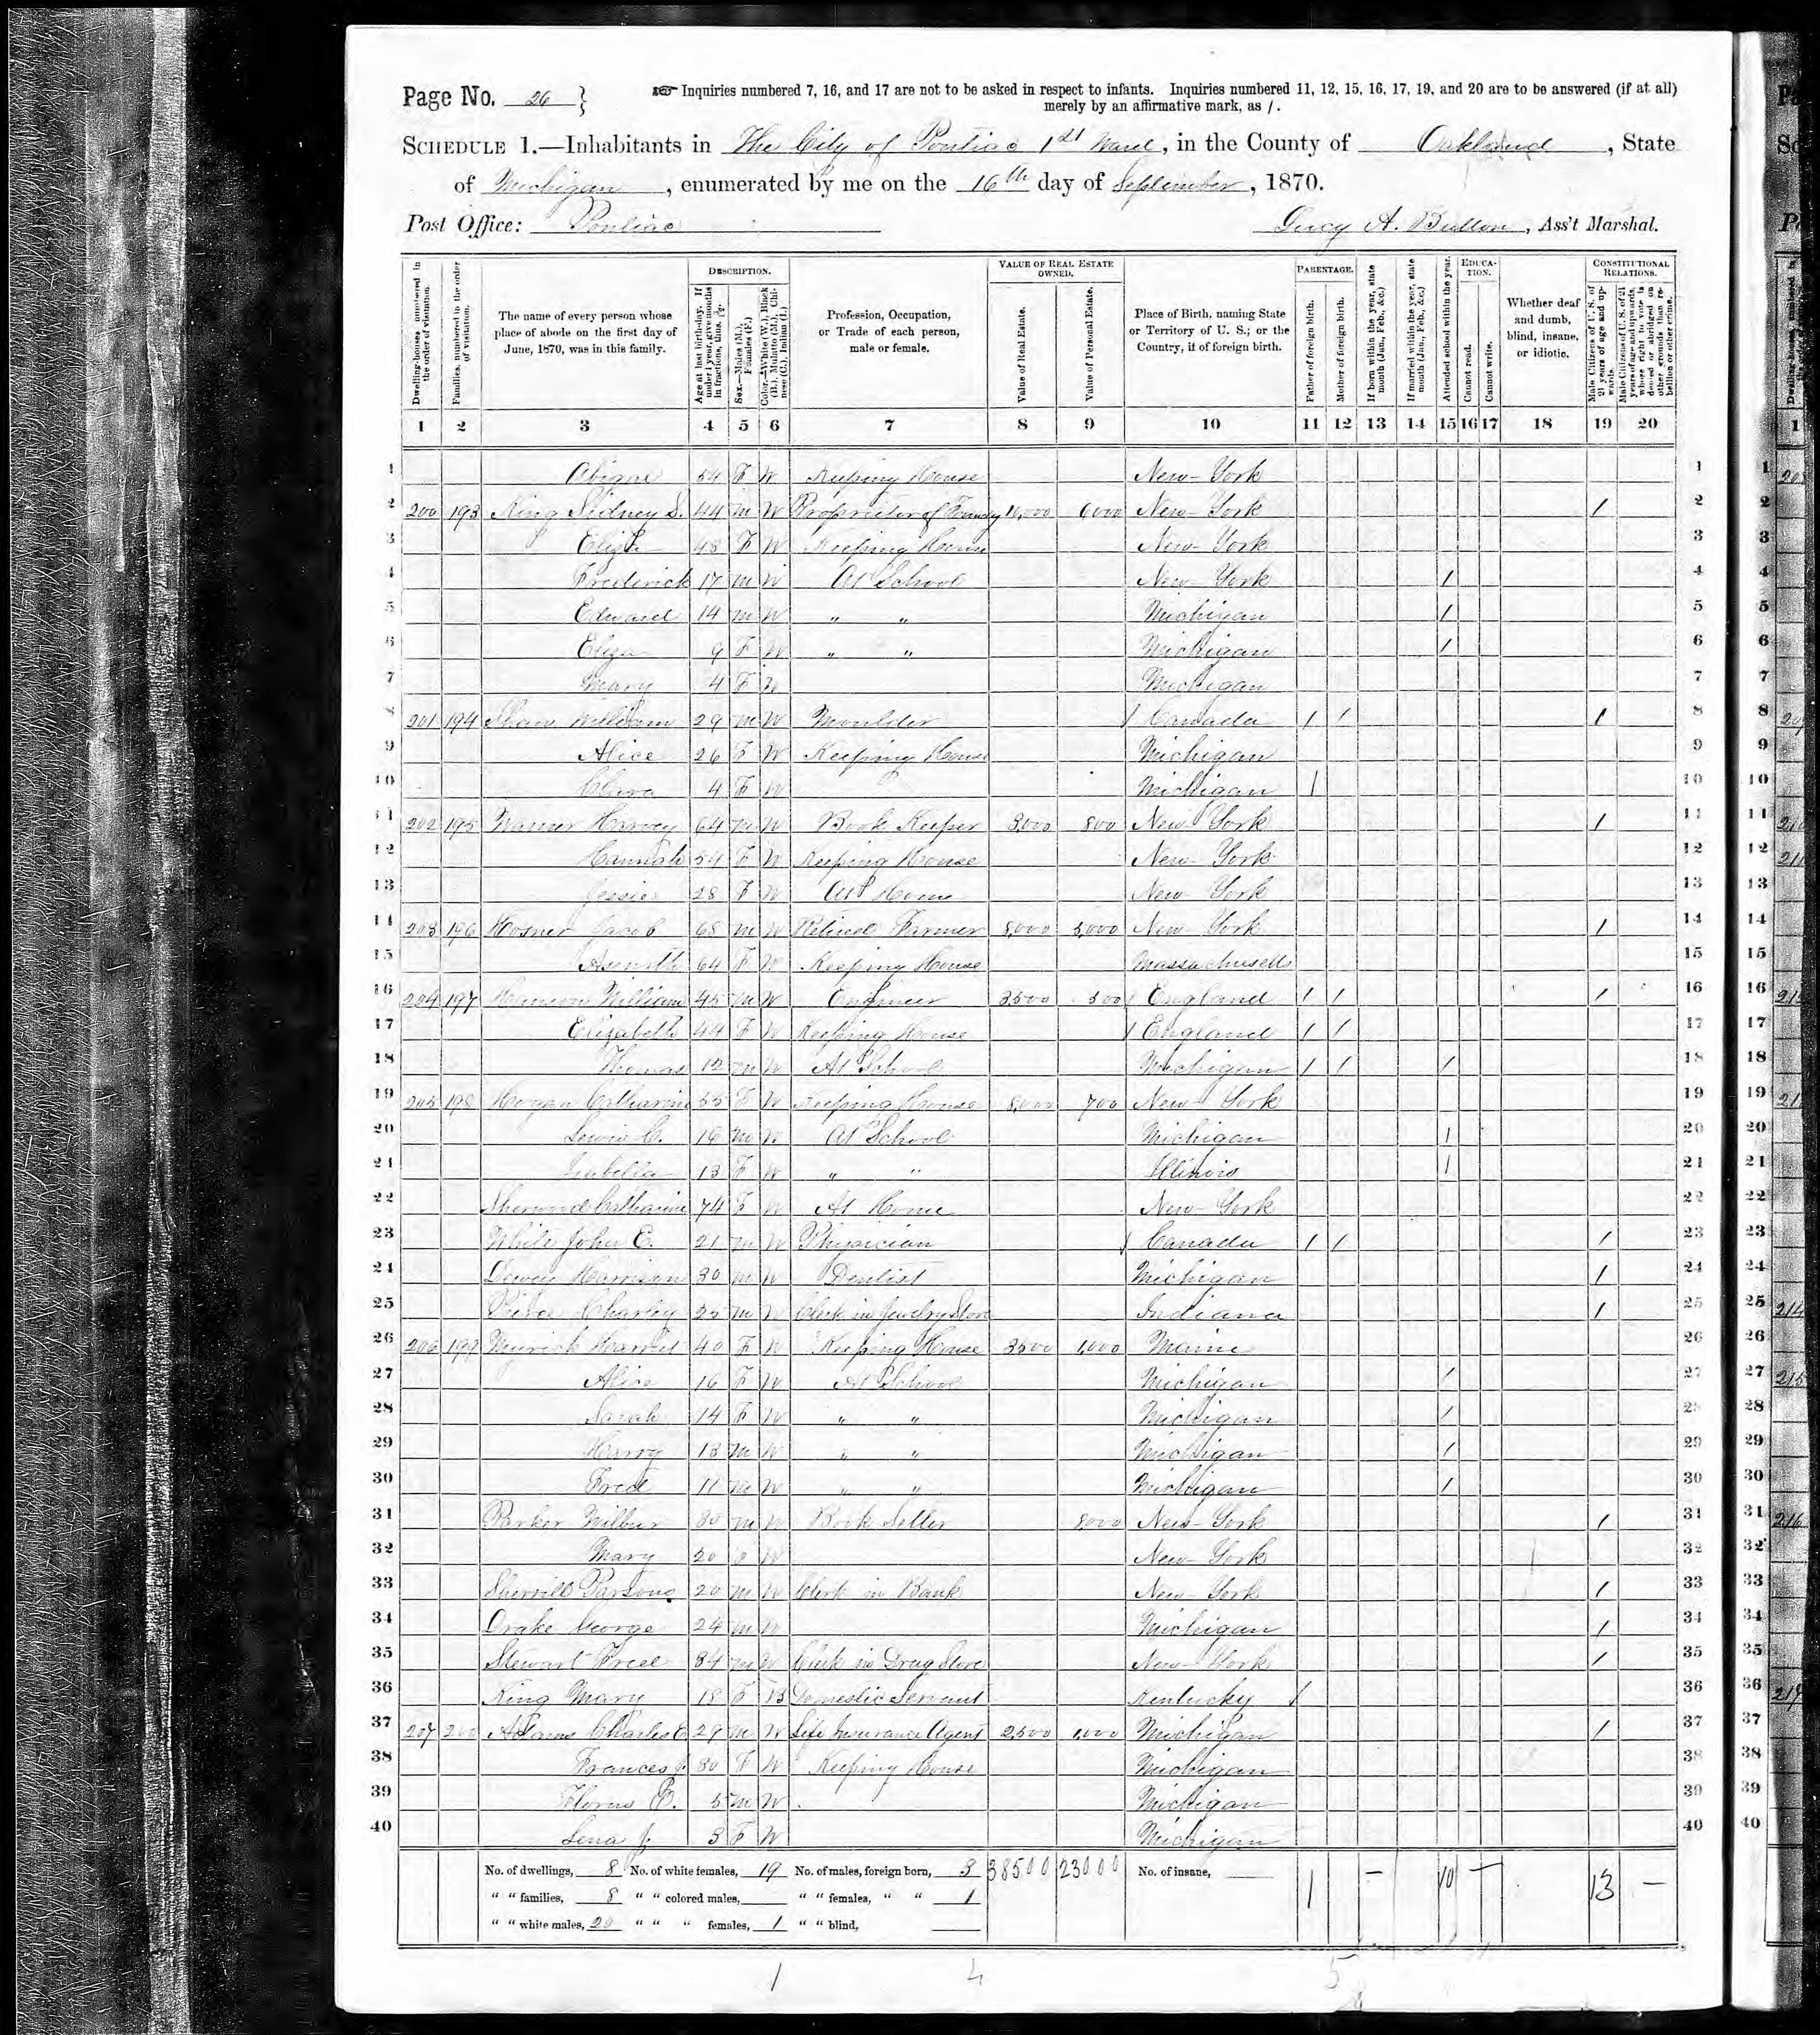 Page No. 26 } Inquiries numbered 7, 16, and 17 are not to be asked in respect to infants. Inquiries numbered 11, 12, 15, 16, 17, 19, and 20 are to be answered (if at all)
merely by an affirmative mark, as /.
SCHEDULE 1.—Inhabitants in The City of Pontiac 1st Ward, in the County of Oakland, State
of Michigan, enumerated by me on the 16th day of September, 1870.
Post Office: Pontiac A. , Ass't Marshal.
Dwelling-houses, numbered in the order of visitation.
Families, numbered in the order of visitation.
The name of every person whose place of abode on the first day of June, 1870, was in this family.
DESCRIPTION.
Age at last birth-day. If under 1 year, give months in fractions, thus,
Sex.—Males (M.), Females (F.)
Color.—White (W.), Black (B.), Mulatto (M.), Chinese (C.), Indian (I.)
Profession, Occupation, or Trade of each person, male or female.
VALUE OF REAL ESTATE OWNED.
Value of Real Estate.
Value of Personal Estate.
Place of Birth, naming State or Territory of U. S.; or the Country, if of foreign birth.
PARENTAGE.
Father of foreign birth.
Mother of foreign birth.
If born within the year, state month (Jan., Feb., &c.)
If married within the year, state month (Jan., Feb., &c.)
Attended school within the year.
EDUCATION.
Cannot read.
Cannot write.
Whether deaf and dumb, blind, insane, or idiotic.
CONSTITUTIONAL RELATIONS.
Male Citizens of U. S. of 21 years of age and upwards.
Male Citizens of U. S. of 21 years of age and upwards, whose right to vote is denied or abridged on other grounds than rebellion or other crime.
1 2 3 4 5 6 7 8 9 10 11 12 13 14 15 16 17 18 19 20
1 54 F W Keeping House New-York 1
2 200 193 King Sidney S. 44 M W Proprietor of Foundry 6000 New-York / 2
3 Eliza 48 F W Keeping House New-York 3
4 Frederick 17 M W At School New-York / 4
5 Edward 14 M W " " Michigan / 5
6 Eliza 9 F W " " Michigan / 6
7 Mary 4 F W Michigan 7
8 201 194 Shaw William 29 M W Moulder / Canada / / / 8
9 Alice 26 F W Keeping House Michigan 9
10 Clara 4 F W Michigan / 10
11 202 195 Harvey 64 M W Book Keeper 3,000 800 New-York / 11
12 Hannah 54 F W Keeping House New-York 12
13 Jessie 28 F W At Home New-York 13
14 203 196 Hosner Jacob 68 M W Retired Farmer 8,000 5,000 New-York / 14
15 Asenath 64 F W Keeping House Massachusetts 15
16 204 197 William 45 M W Engineer 3500 500 / England / / / 16
17 Elizabeth 44 F W Keeping House / England / / 17
18 Thomas 12 M W At School Michigan / / / 18
19 205 198 Hogan Catharine 55 F W Keeping House 8,000 700 New-York 19
20 Lewis C. 16 M W At School Michigan / 20
21 Isabella 13 F W " " Illinois / 21
22 Sherwood Catharine 74 F W At Home New-York 22
23 White John E. 21 M W Physician / Canada / / / 23
24 Dewey Harrison 30 M W Dentist Michigan / 24
25 Pierce Charley 25 M W Clerk in Jewelry Store Indiana / 25
26 206 199 Harriet 40 F W Keeping House 3500 1,000 Maine 26
27 Alice 16 F W At School Michigan / 27
28 Sarah 14 F W " " Michigan / 28
29 Harry 13 M W " " Michigan / 29
30 Fred 11 M W " " Michigan / 30
31 Parker Wilbur 30 M W Book Seller 8000 New-York / 31
32 Mary 20 F W New-York 32
33 Sherrill Parsons 20 M W Clerk in Bank New-York / 33
34 Drake George 24 M W Michigan / 34
35 Stewart Fred 34 M W Clerk in Drug Store New-York / 35
36 King Mary 18 F B Domestic Servant Kentucky / 36
37 207 200 Adams Charles E. 29 M W Life Insurance Agent 2,500 1,000 Michigan / 37
38 Frances J. 30 F W Keeping House Michigan 38
39 5 M W Michigan 39
40 Lena J. 3 F W Michigan 40
No. of dwellings, 8 No. of white females, 19 No. of males, foreign born, 3 38500 23000 No. of insane, 1 – 10 – 13 –
" " families, 8 " " colored males, " " females, " " 1
" " white males, 20 " " " females, 1 " " blind,
1 4 5